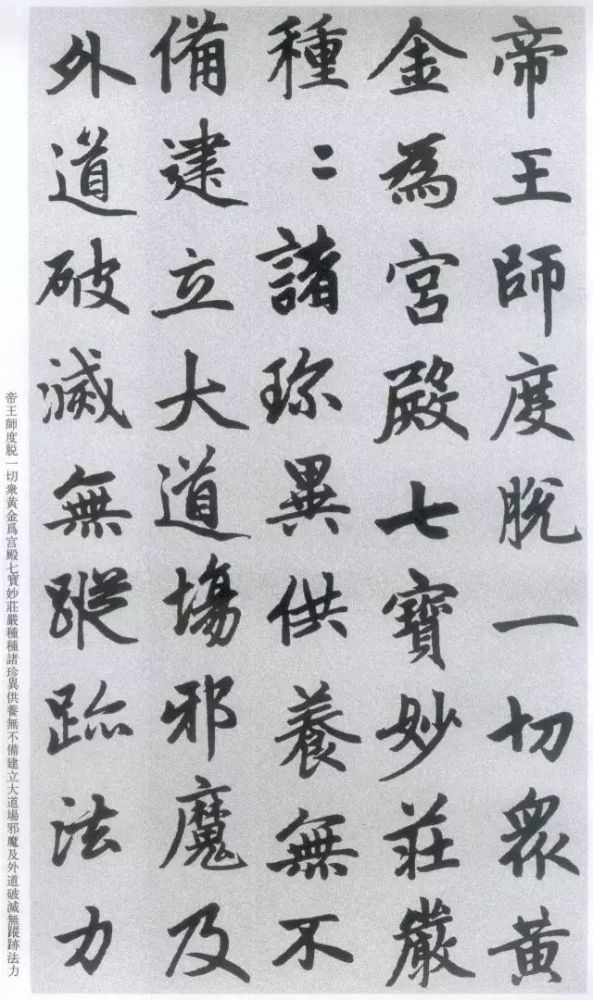 帝王師度脫一切衆黃
金為宮殿七寶妙莊嚴
種〻諸珎異供養無不
備建立大道場邪魔及
外道破滅無蹤跡法力
帝王師度脱一切衆黃金爲宫殿七寶妙莊嚴種種諸珍異供養無不備建立大道場邪魔及外道破滅無蹤跡法力